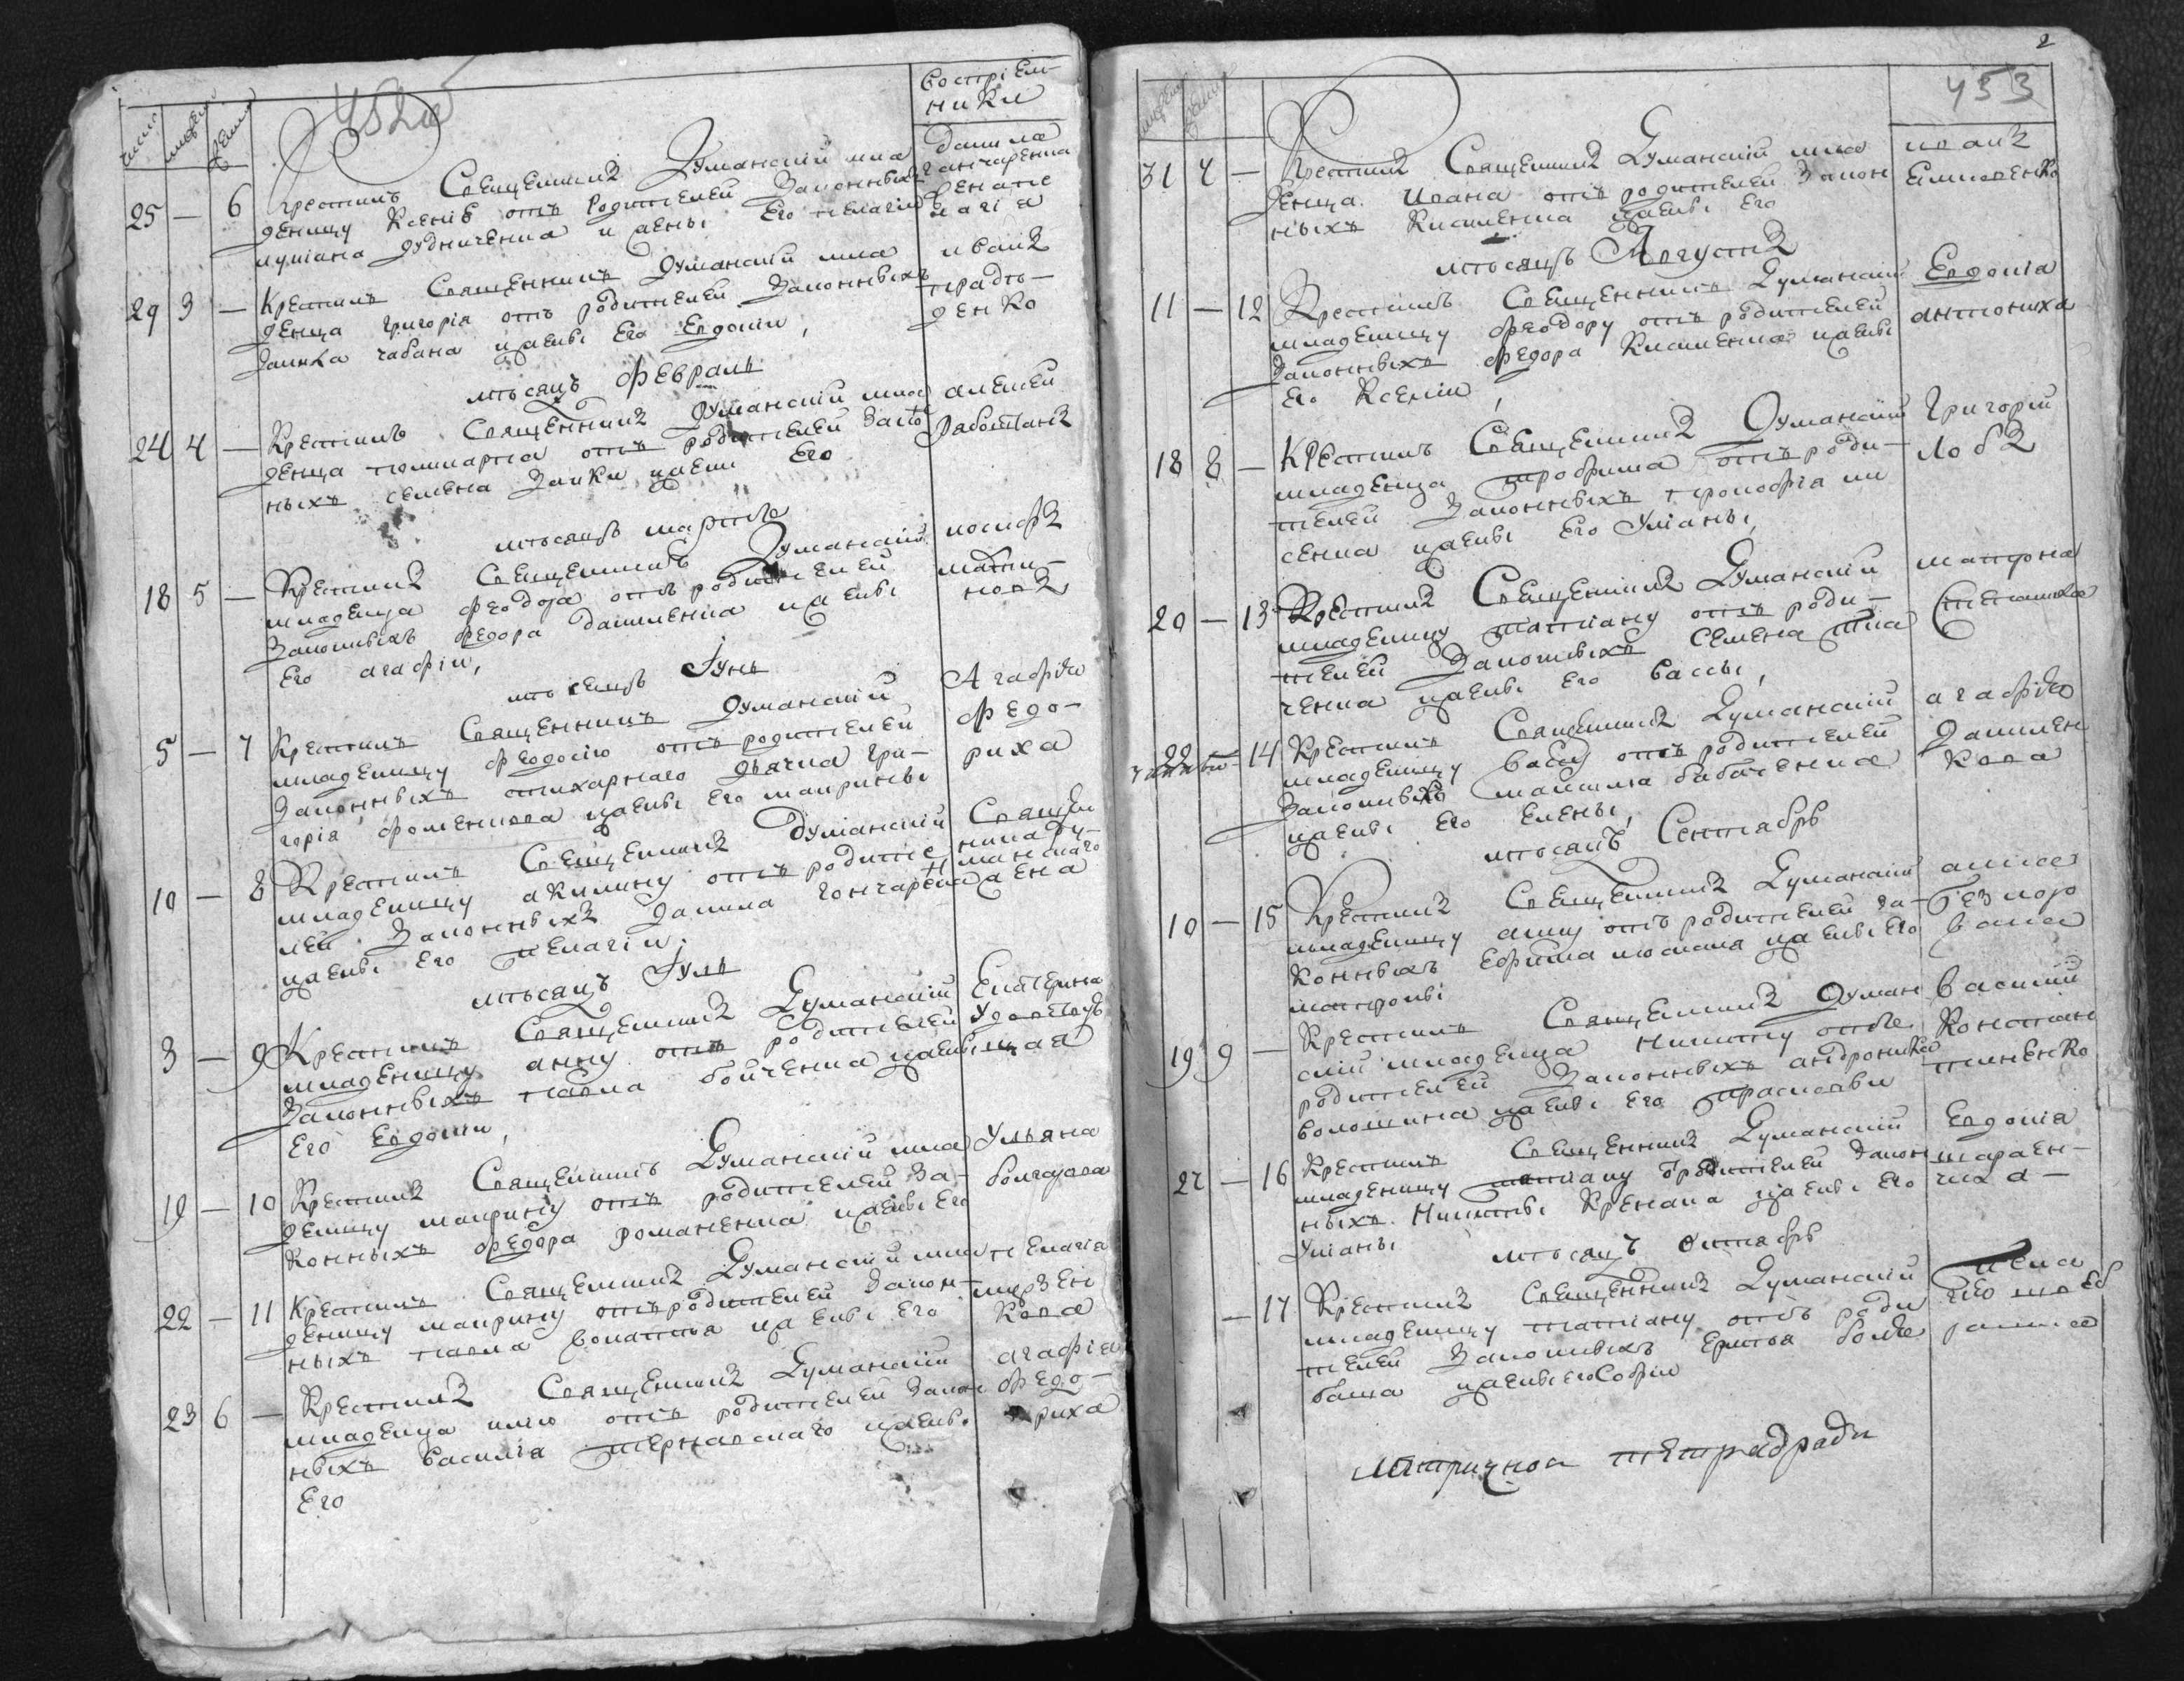 452а
число
мужеск
женск
воспріем
ники
25 — 6 Крестилъ Священникъ Думанскій мла
деницу Ксенію отъ родителей Законныхъ
луціана дудниченка и жены Его пелагіи
данила
ганчаренка
жена пе
лагіа
29 3 — Крестилъ Священникъ Думанскій мла
денца григорія отъ родителей Законныхъ
Заика чабана и жены Его Евдокіи,
иванъ
прадъ—
денко
мѣсяцъ февраль
24 4 — Крестилъ Священникъ Думанскій мла
денца поликарпа отъ родителей Зако
ныхъ семена Заики жены Его
алексей
работянъ
мѣсяцъ мартъ
18 5 — Крестилъ Священникъ Думанскій
младенца феодора отъ родителей
Законныхъ федора данилена и жены
Его агафіи,
иосифъ
малы—
новъ
мѣсяцъ Іунь
5 — 7 Крестилъ Священникъ Думанскій
младеницу феодосію отъ родителей
Законныхъ стихарнаго дьячка гри—
горія фоменкова и жены Его маприны
Агафія
федо—
риха
10 — 8 Крестилъ Священникъ Думанскій
младеницу акилину отъ родите
лей Законныхъ Данила гончаренка
и жены Его пелагіи.
Свящён
ника ду—
манскаго
жена
мѣсяцъ Іуль
3 — 9 Крестилъ Священникъ Думанскій
младеницу анну отъ родителей
Законныхъ павла бойченка и жены
Его Евдокіи,
Екатерина
19 — 10 Крестилъ Священникъ Думанскій мла
деницу маприну отъ родителей За—
конныхъ федора романенка и жены Его
Ульяна
болгарова
22 — 11 Крестилъ Священникъ Думанскій мла
деницу маприну отъ родителей Закон—
ныхъ павла и жены Его
пелагіа
мерзен
кова
23 6 — Крестилъ Священникъ Думанскій
младенца илію отъ родителей Закон
ныхъ Василія тернавскаго и жены
Его
агафіа
федо—
риха
2
453
мужеск
женск
31 7 — Крестилъ Священникъ Думанскій мла
денца Ивана отъ родителей Закон
ныхъ Кисиленка и жены Его
иванъ
мѣсяцъ Августъ
11 — 12 Крестилъ Священникъ Думанскій
младеницу феодору отъ родителей
Законныхъ федора Кисиленка и жены
Его Ксеніи,
Евдокіа
антониха
18 8 — Крестилъ Священникъ Думанскій
младенца трофима отъ роди—
телей Законныхъ прокофіа ли
сенка и жены Его Уліаны,
Григорій
Лобъ
20 — 13 Крестилъ Священникъ Думанскій
младеницу татіану отъ роди—
телей Законныхъ семена тка
ченка и жены Его Вассы,
матрона
22 — 14 Крестилъ Священникъ Думанскій
младеницу Васу отъ родителей
Законныхъ бабаченка
и жены Его Елены,
агафіа
данилен
кова
мѣсяцъ Сентябрь
10 — 15 Крестилъ Священникъ Думанскій
младеницу анну отъ родителей за—
конныхъ Ефима и жены Его
матроны
анна
19 9 — Крестилъ Священникъ Думан
скій младенца никиту отъ
родителей Законныхъ андроника
волошина и жены Его прасковіи
василій
Констан
тиненко
27 — 16 Крестилъ Священникъ Думанскій
младеницу татіану родителей Закон
ныхъ Никиты и жены Его
Уліаны
Евдокіа
таран—
чиха—
мѣсяцъ октябрь
— 17 Крестилъ Священникъ Думанскій
младеницу татіану отъ роди
телей Законныхъ
баша и жены его Софіи
метричной